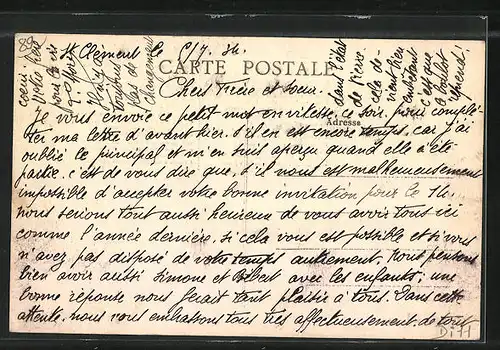 St Clément le 5/7. 36.
CARTE POSTALE
Adresse
Chers Frère et Soeur.
Je vous envoie ce petit mot en vitesse, ce soir, pour complé-
ter ma lettre d'avant hier. S'il en est encore temps, car j'ai
oublié le principal et m'en suis aperçu quand elle a été
partie. c'est de vous dire que, s'il nous est malheureusement
impossible d'accepter votre bonne invitation pour le 14.
nous serions tout aussi heureux de vous avoir tous ici
comme l'année dernière, si cela vous est possible et si vous
n'avez pas disposé de votre temps autrement. Nous pensons
bien avoir aussi Simone et Albert avec les enfants; une
bonne réponse nous ferait tant plaisir à tous. Dans cette
attente, nous vous embrassons tous très affectueusement. de tout
coeur
votre
pour le
toujours
pas de
changement
dans l'état
de Pierre.
cela de-
vient bien
c'est que
le boulot